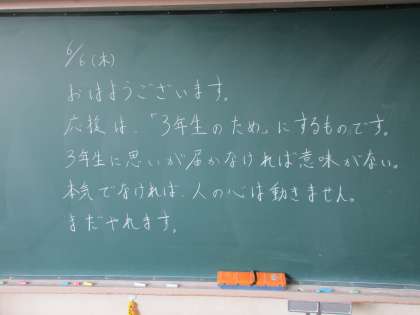 6/6(木)
おはようございます。
応援は、「3年生のため」にするものです。
3年生に思いが届かなければ意味がない。
本気でなければ、人の心は動きません。
まだやれます。